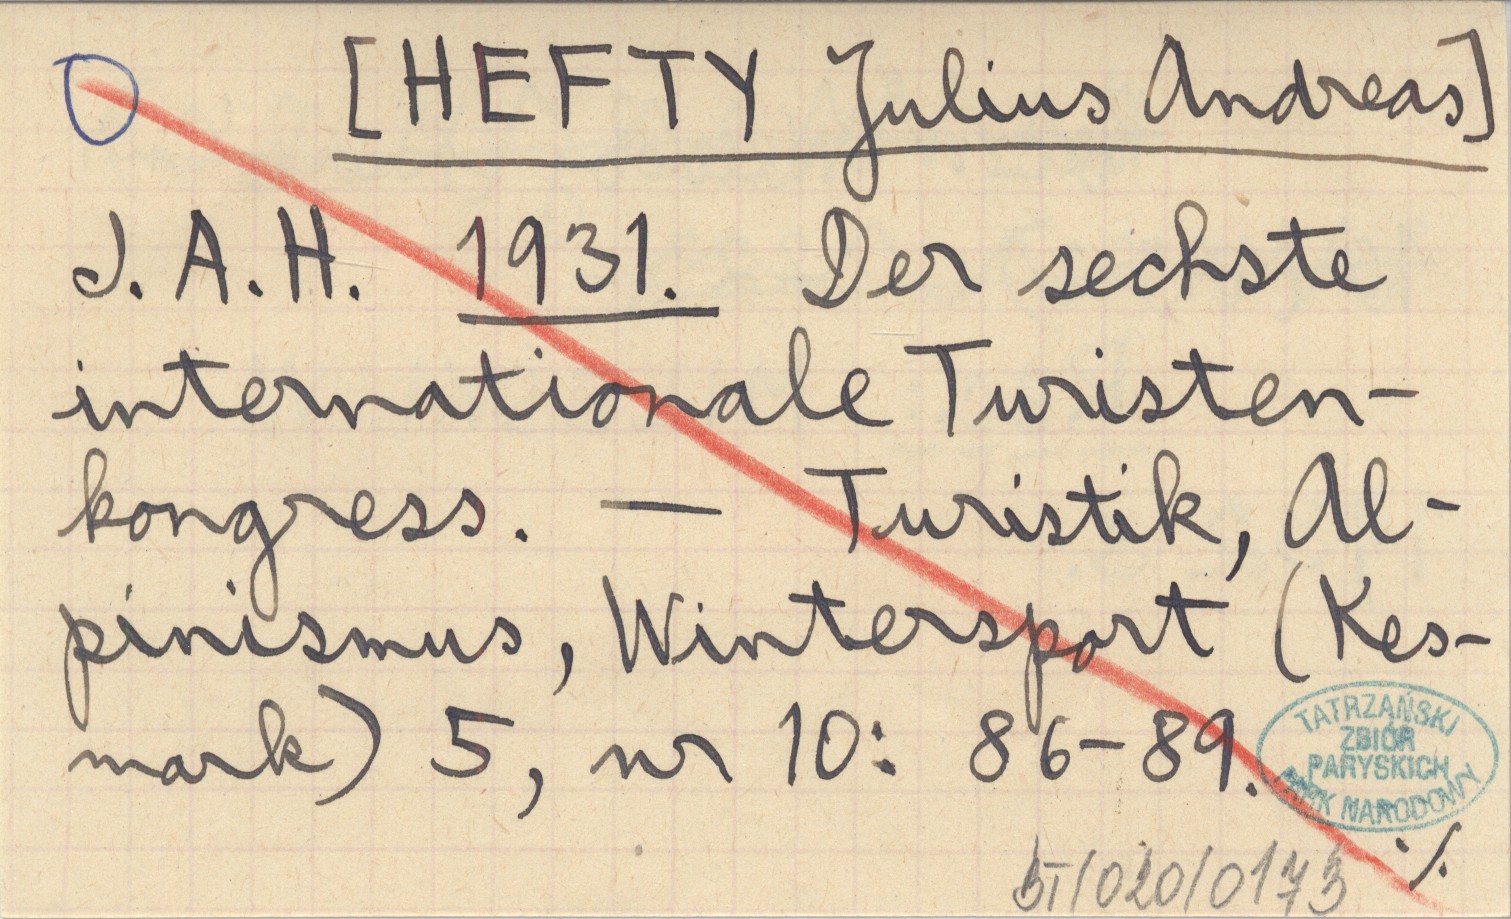 [HEFTY Julius Andreas]
J. A. H. 1931. Der sechste
internationale Turisten-
kongress. — Turistik, Al-
pinismus, Wintersport (Kes-
mark) 5, nr 10: 86-89.
TATRZAŃSKI
ZBIÓR
PARYSKICH
PARK NARODOWY
./.
BT/020/0173